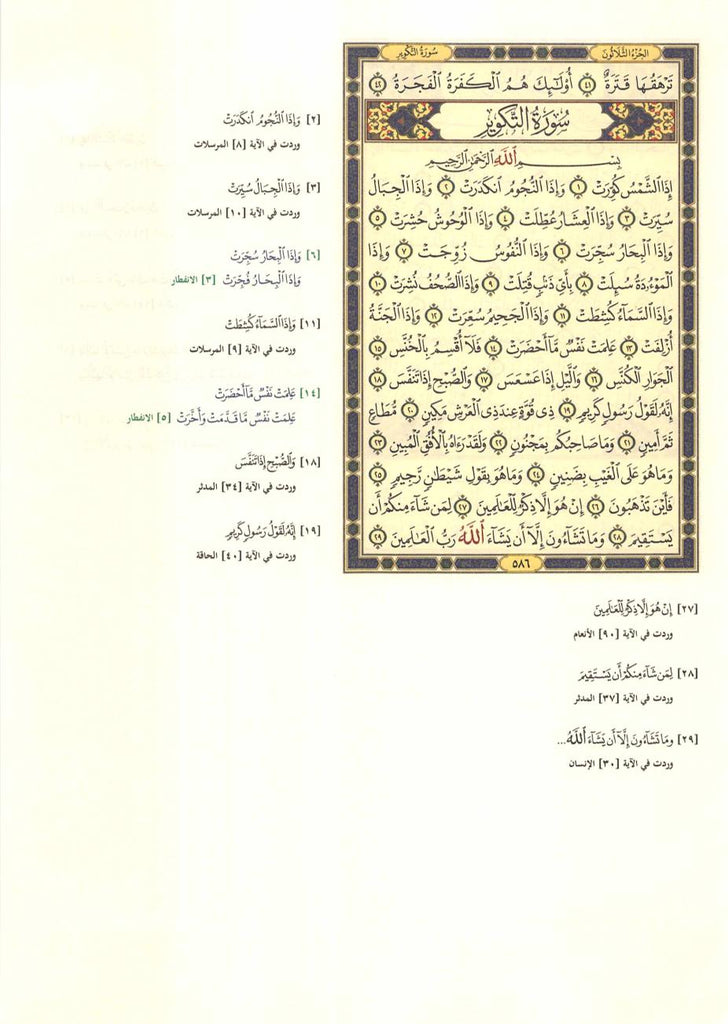 الجزء الثلاثون
سورة التكوير
تَرْهَقُهَا قَتَرَةٌ ٤١ أُوْلَٰٓئِكَ هُمُ ٱلْكَفَرَةُ ٱلْفَجَرَةُ ٤٢
سُورَةُ التَّكْوِيرِ
بِسْمِ ٱللَّهِ ٱلرَّحْمَٰنِ ٱلرَّحِيمِ
إِذَا ٱلشَّمْسُ كُوِّرَتْ ١ وَإِذَا ٱلنُّجُومُ ٱنكَدَرَتْ ٢ وَإِذَا ٱلْجِبَالُ
سُيِّرَتْ ٣ وَإِذَا ٱلْعِشَارُ عُطِّلَتْ ٤ وَإِذَا ٱلْوُحُوشُ حُشِرَتْ ٥
وَإِذَا ٱلْبِحَارُ سُجِّرَتْ ٦ وَإِذَا ٱلنُّفُوسُ زُوِّجَتْ ٧ وَإِذَا
ٱلْمَوْءُۥدَةُ سُئِلَتْ ٨ بِأَيِّ ذَنۢبٍ قُتِلَتْ ٩ وَإِذَا ٱلصُّحُفُ نُشِرَتْ ١٠
وَإِذَا ٱلسَّمَآءُ كُشِطَتْ ١١ وَإِذَا ٱلْجَحِيمُ سُعِّرَتْ ١٢ وَإِذَا ٱلْجَنَّةُ
أُزْلِفَتْ ١٣ عَلِمَتْ نَفْسٌ مَّآ أَحْضَرَتْ ١٤ فَلَآ أُقْسِمُ بِٱلْخُنَّسِ ١٥
ٱلْجَوَارِ ٱلْكُنَّسِ ١٦ وَٱلَّيْلِ إِذَا عَسْعَسَ ١٧ وَٱلصُّبْحِ إِذَا تَنَفَّسَ ١٨
إِنَّهُۥ لَقَوْلُ رَسُولٍ كَرِيمٍ ١٩ ذِي قُوَّةٍ عِندَ ذِي ٱلْعَرْشِ مَكِينٍ ٢٠ مُّطَاعٍ
ثَمَّ أَمِينٍ ٢١ وَمَا صَاحِبُكُم بِمَجْنُونٍ ٢٢ وَلَقَدْ رَءَاهُ بِٱلْأُفُقِ ٱلْمُبِينِ ٢٣
وَمَا هُوَ عَلَى ٱلْغَيْبِ بِضَنِينٍ ٢٤ وَمَا هُوَ بِقَوْلِ شَيْطَٰنٍ رَّجِيمٍ ٢٥
فَأَيْنَ تَذْهَبُونَ ٢٦ إِنْ هُوَ إِلَّا ذِكْرٌ لِّلْعَٰلَمِينَ ٢٧ لِمَن شَآءَ مِنكُمْ أَن
يَسْتَقِيمَ ٢٨ وَمَا تَشَآءُونَ إِلَّآ أَن يَشَآءَ ٱللَّهُ رَبُّ ٱلْعَٰلَمِينَ ٢٩
٥٨٦
[٢] وَإِذَا ٱلنُّجُومُ ٱنكَدَرَتْ
وردت في الآية [٨] المرسلات
[٣] وَإِذَا ٱلْجِبَالُ سُيِّرَتْ
وردت في الآية [١٠] المرسلات
[٦] وَإِذَا ٱلْبِحَارُ سُجِّرَتْ
وَإِذَا ٱلْبِحَارُ فُجِّرَتْ [٣] الانفطار
[١١] وَإِذَا ٱلسَّمَآءُ كُشِطَتْ
وردت في الآية [٩] المرسلات
[١٤] عَلِمَتْ نَفْسٌ مَّآ أَحْضَرَتْ
عَلِمَتْ نَفْسٌ مَّا قَدَّمَتْ وَأَخَّرَتْ [٥] الانفطار
[١٨] وَٱلصُّبْحِ إِذَا تَنَفَّسَ
وردت في الآية [٣٤] المدثر
[١٩] إِنَّهُۥ لَقَوْلُ رَسُولٍ كَرِيمٍ
وردت في الآية [٤٠] الحاقة
[٢٧] إِنْ هُوَ إِلَّا ذِكْرٌ لِّلْعَٰلَمِينَ
وردت في الآية [٩٠] الأنعام
[٢٨] لِمَن شَآءَ مِنكُمْ أَن يَسْتَقِيمَ
وردت في الآية [٣٧] المدثر
[٢٩] وَمَا تَشَآءُونَ إِلَّآ أَن يَشَآءَ ٱللَّهُ...
وردت في الآية [٣٠] الإنسان